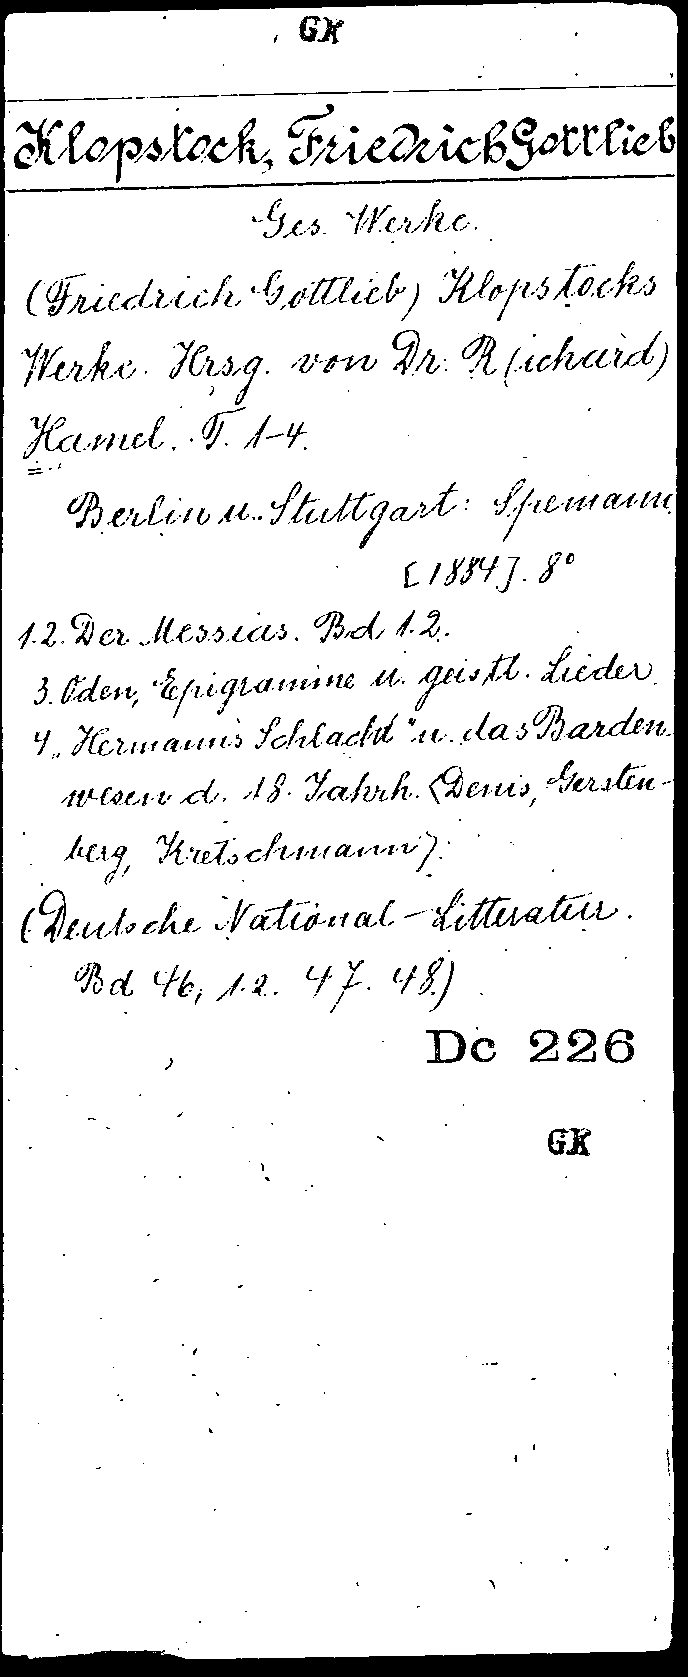 GK
Klopstock, Friedrich Gottlieb
Ges. Werke.
(Friedrich Gottlieb) Klopstocks
Werke. Hrsg. von Dr. R(ichard)
Hamel. T. 1-4.
Berlin u. Stuttgart: Spemann
[1884]. 8°
1.2. Der Messias. Bd 1.2.
3. Oden, Epigramme u. geistl. Lieder.
4. „Hermanns Schlacht" u. das Barden-
wesen d. 18. Jahrh. <Denis, Gersten-
berg, Kretschmann>.
(Deutsche National-Litteratur.
Bd 46, 1.2. 47. 48.)
Dc 226
GK